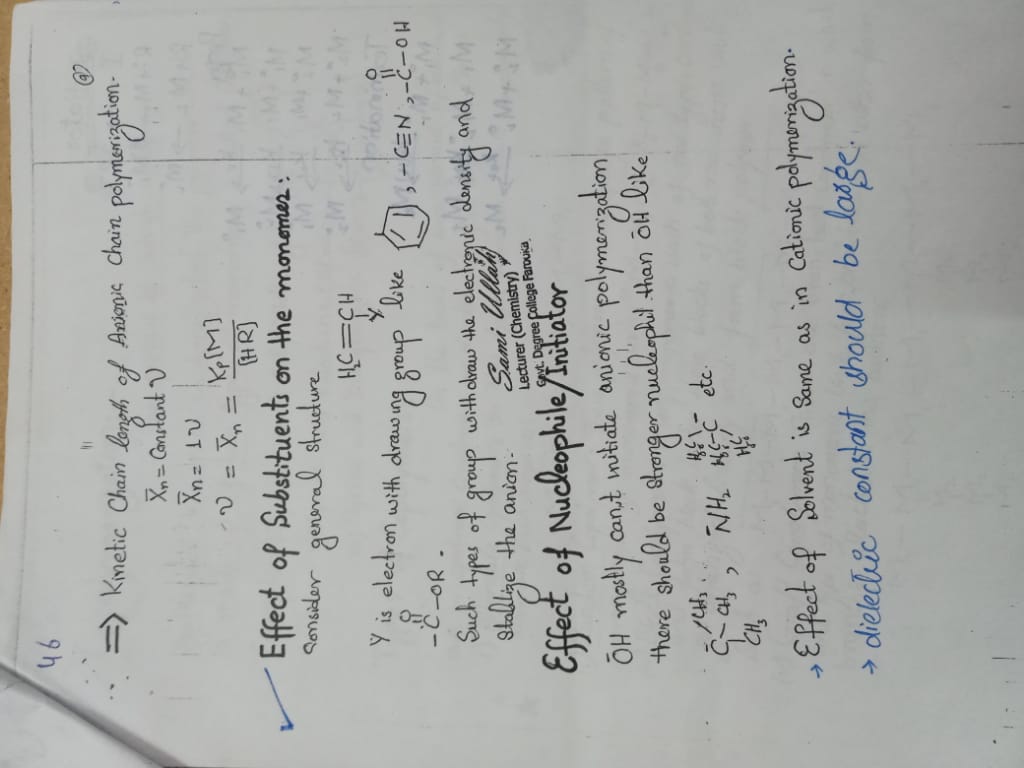 46
⇒ Kinetic Chain length of Anionic chain polymerization.
X̄n = Constant ν
X̄n = 1ν
ν = X̄n = Kp[M] / [HR]
Effect of Substituents on the monomer:
consider general structure
H₂C=CH
Y
Y is electron with drawing group like , -C≡N, -C-OH
O
O
-C-OR.
Such types of group withdraw the electronic density and
stabilize the anion.
Sami Ullah
Lecturer (Chemistry)
Govt. Degree College Farouka
Effect of Nucleophile/Initiator
ŌH mostly can,t initiate anionic polymerization
there should be stronger nucleophil than ŌH like
C̄ CH₃ CH₃ CH₃, N̄H₂ H₃C H₃C H₃C -C̄ etc.
→ Effect of Solvent is Same as in Cationic polymerization.
→ dielectic constant should be large.